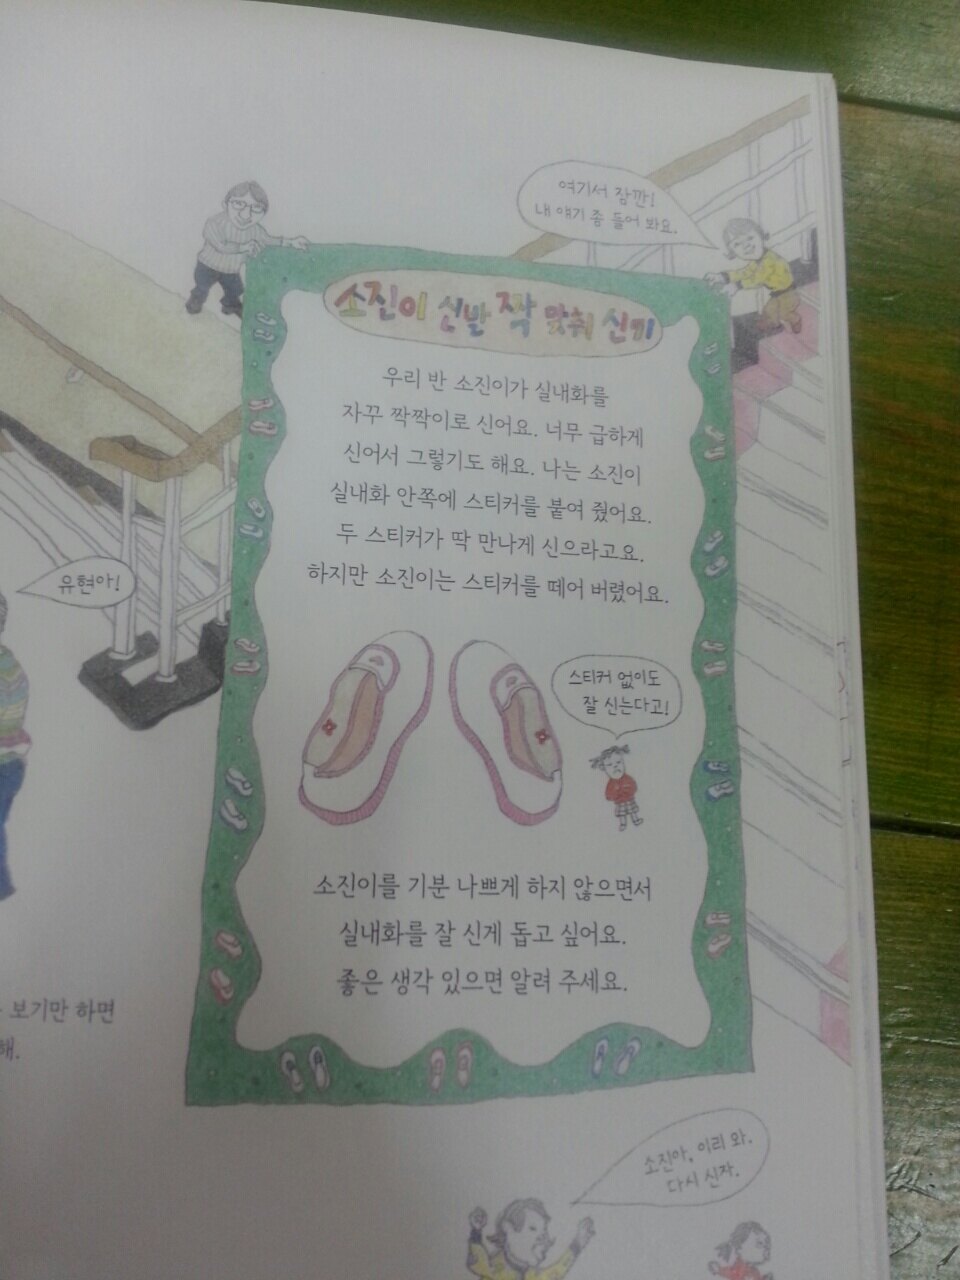 여기서 잠깐!
내 얘기 좀 들어 봐요.
소진이 신발 짝 맞춰 신기
우리 반 소진이가 실내화를
자꾸 짝짝이로 신어요. 너무 급하게
신어서 그렇기도 해요. 나는 소진이
실내화 안쪽에 스티커를 붙여 줬어요.
두 스티커가 딱 만나게 신으라고요.
하지만 소진이는 스티커를 떼어 버렸어요.
유현아!
스티커 없이도
잘 신는다고!
소진이를 기분 나쁘게 하지 않으면서
실내화를 잘 신게 돕고 싶어요.
좋은 생각 있으면 알려 주세요.
보기만 하면
해.
소진아, 이리 와.
다시 신자.